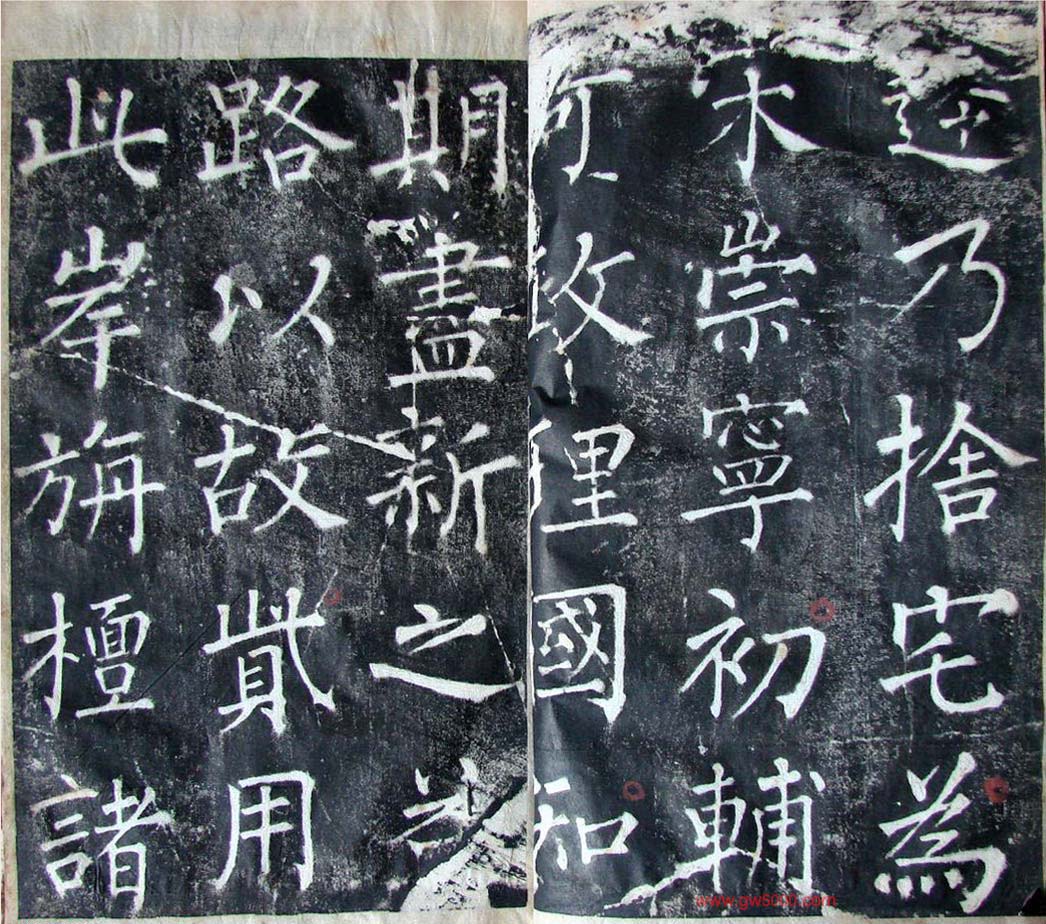 乃捨宅為
宋崇寧初輔
國知
期盡新之
路以故貲用
此岸旃檀諸
www.gw5000.com